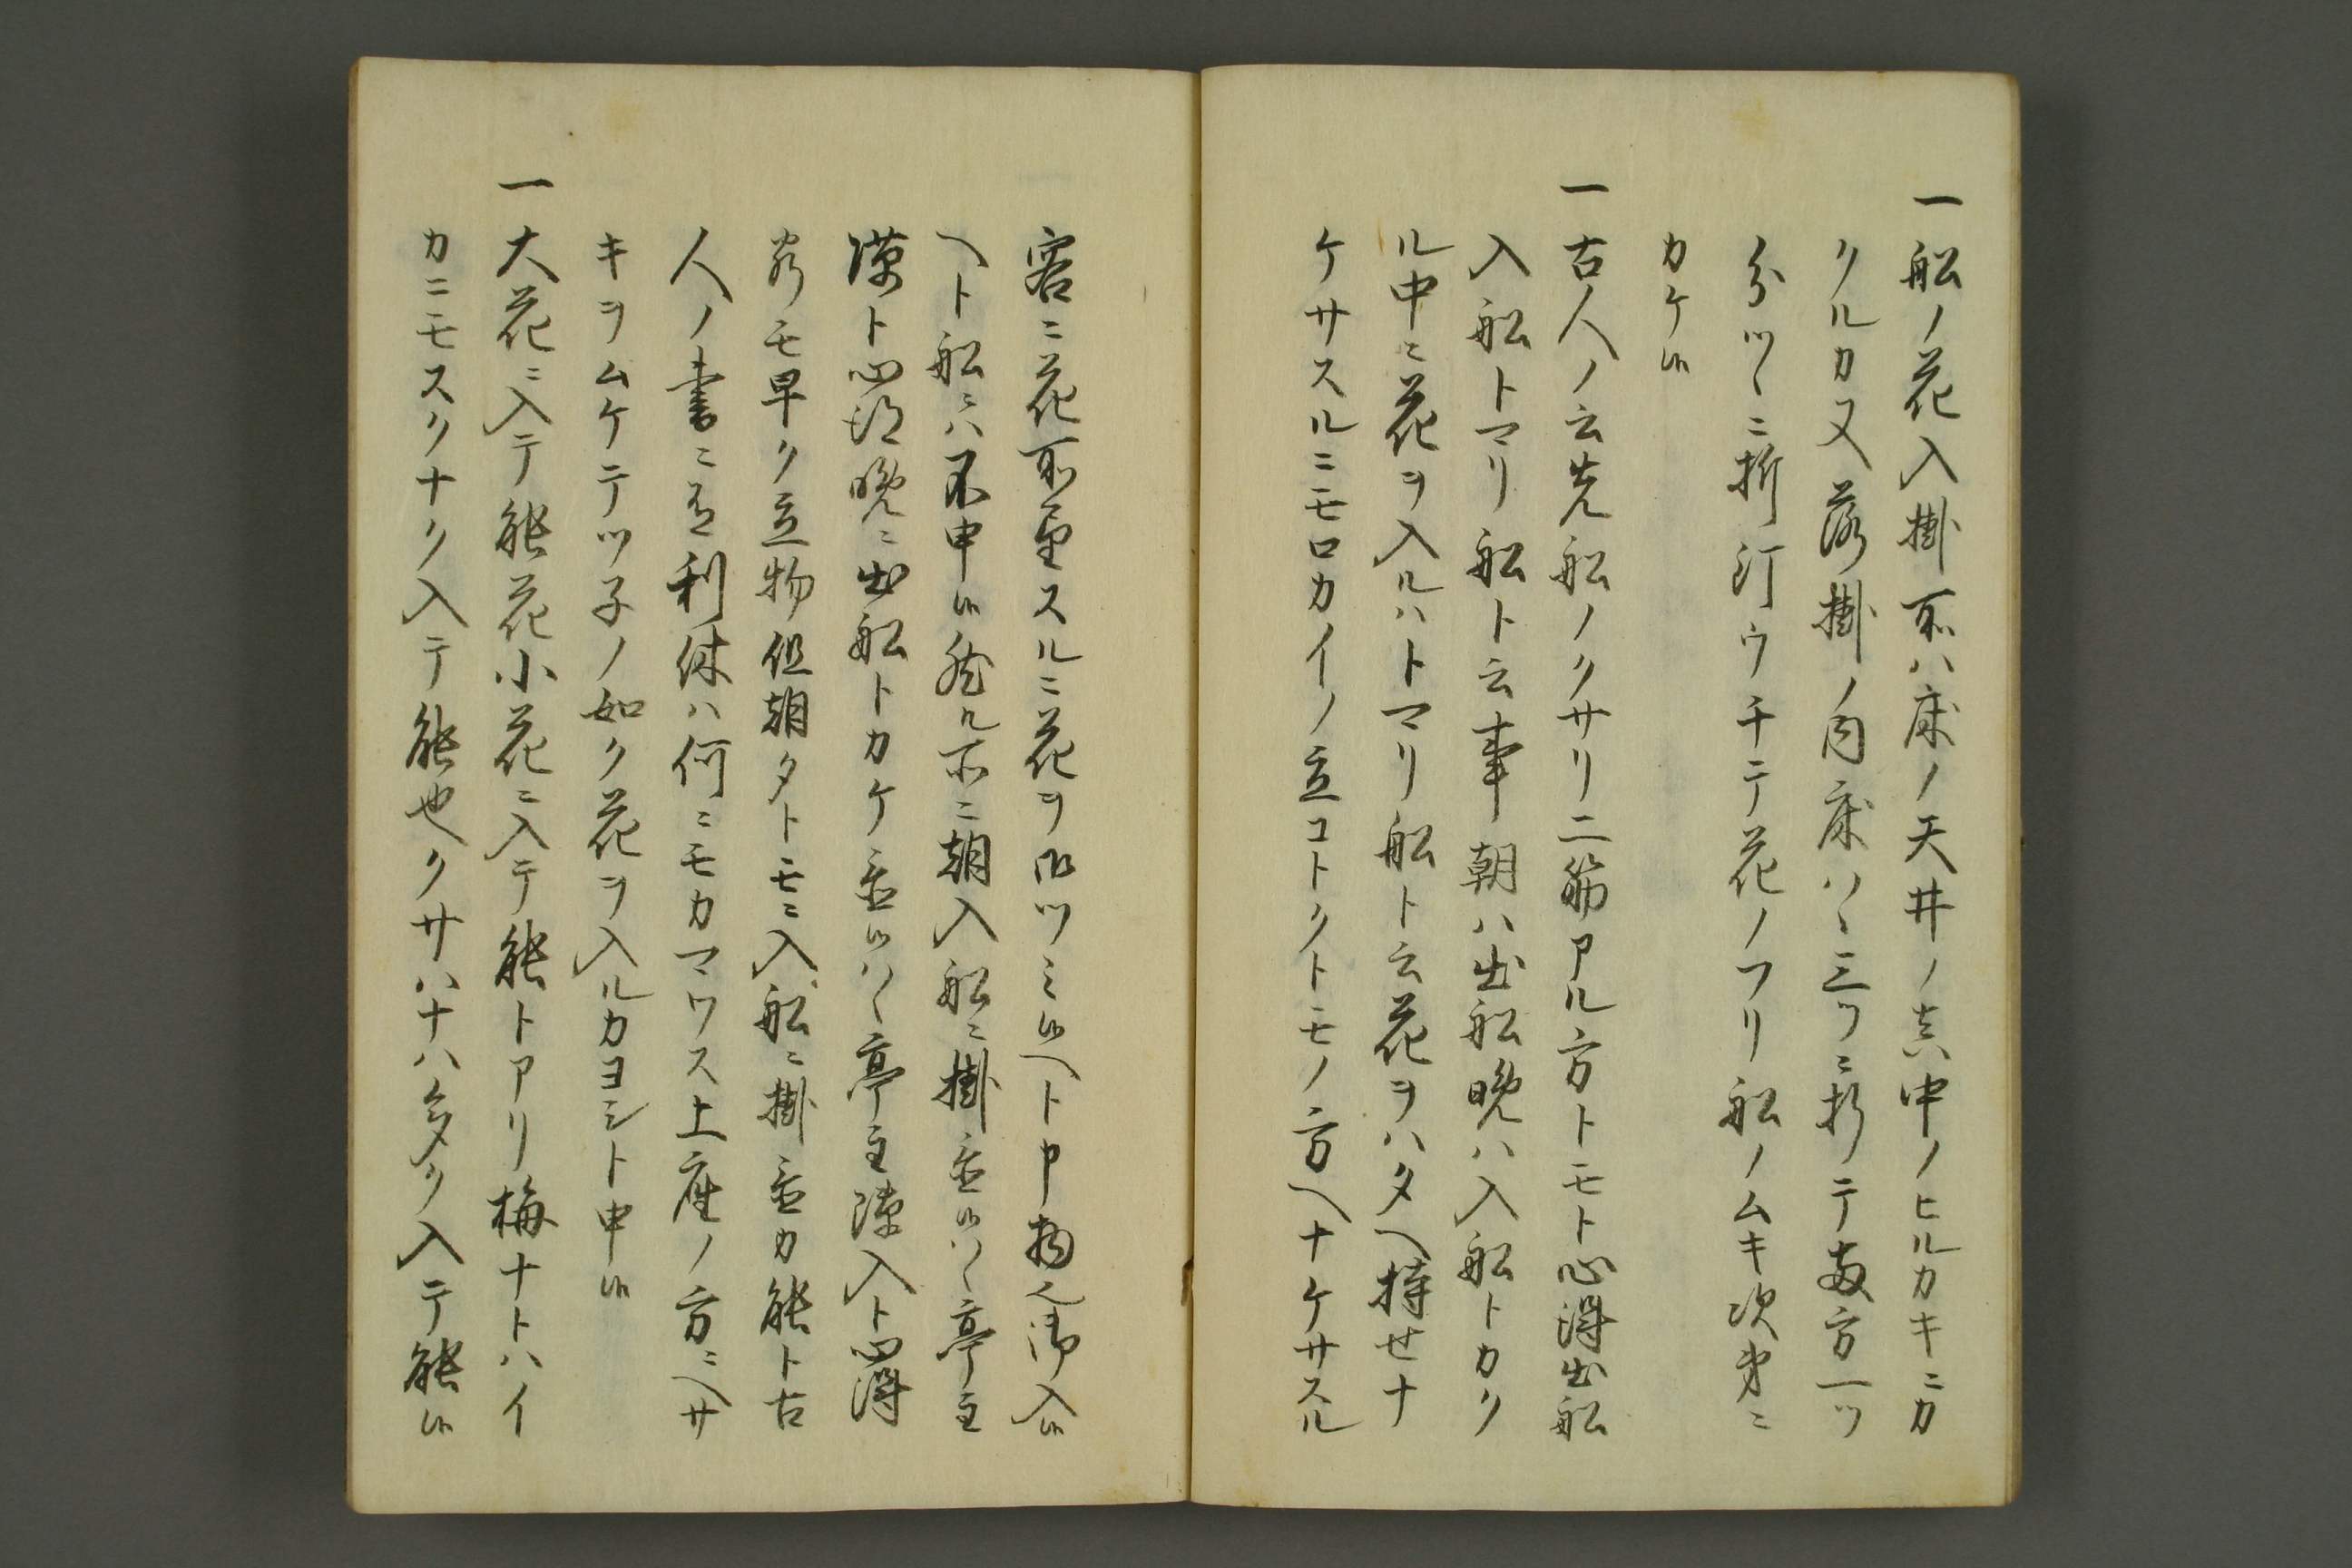 一船ノ花入掛所ハ床ノ天井ノ真中ノヒルカキニカ
クルカ又落掛ノ内床ハヽ三ツニ折テ両方一ツ
分ツヽニ折釘ウチテ花ノフリ船ノムキ次第ニ
カケ候
一古人ノ云先船ノクサリ二筋アル方トモト心得出船
入船トマリ船ト云事朝ハ出船晩ハ入船トカク
ル中ニ花ヲ入ルハトマリ船ト云花ヲハタヘ持せナ
ケサスルニモロカイノ立コトクトモノ方ヘナケサスル
客ニ花所望スルニ花ヲ御ツミ候ヘト申物也御入候
ヘト船ニハ不申候然ル所ニ朝入船ニ掛置候ハヽ亭主
隙ト心得晩ニ出船トカケ置候ハヽ亭主隙入ト心得
客モ早ク立物但朝夕トモニ入船ニ掛置カ能ト古
人ノ書ニ有利休ハ何ニモカマワス上座ノ方ニヘサ
キヲムケテツ子ノ如ク花ヲ入ルカヨシト申候
一大花ニ入テ能花小花ニ入テ能トアリ梅ナトハイ
カニモスクナク入テ能也クサハナハ多ク入テ能候